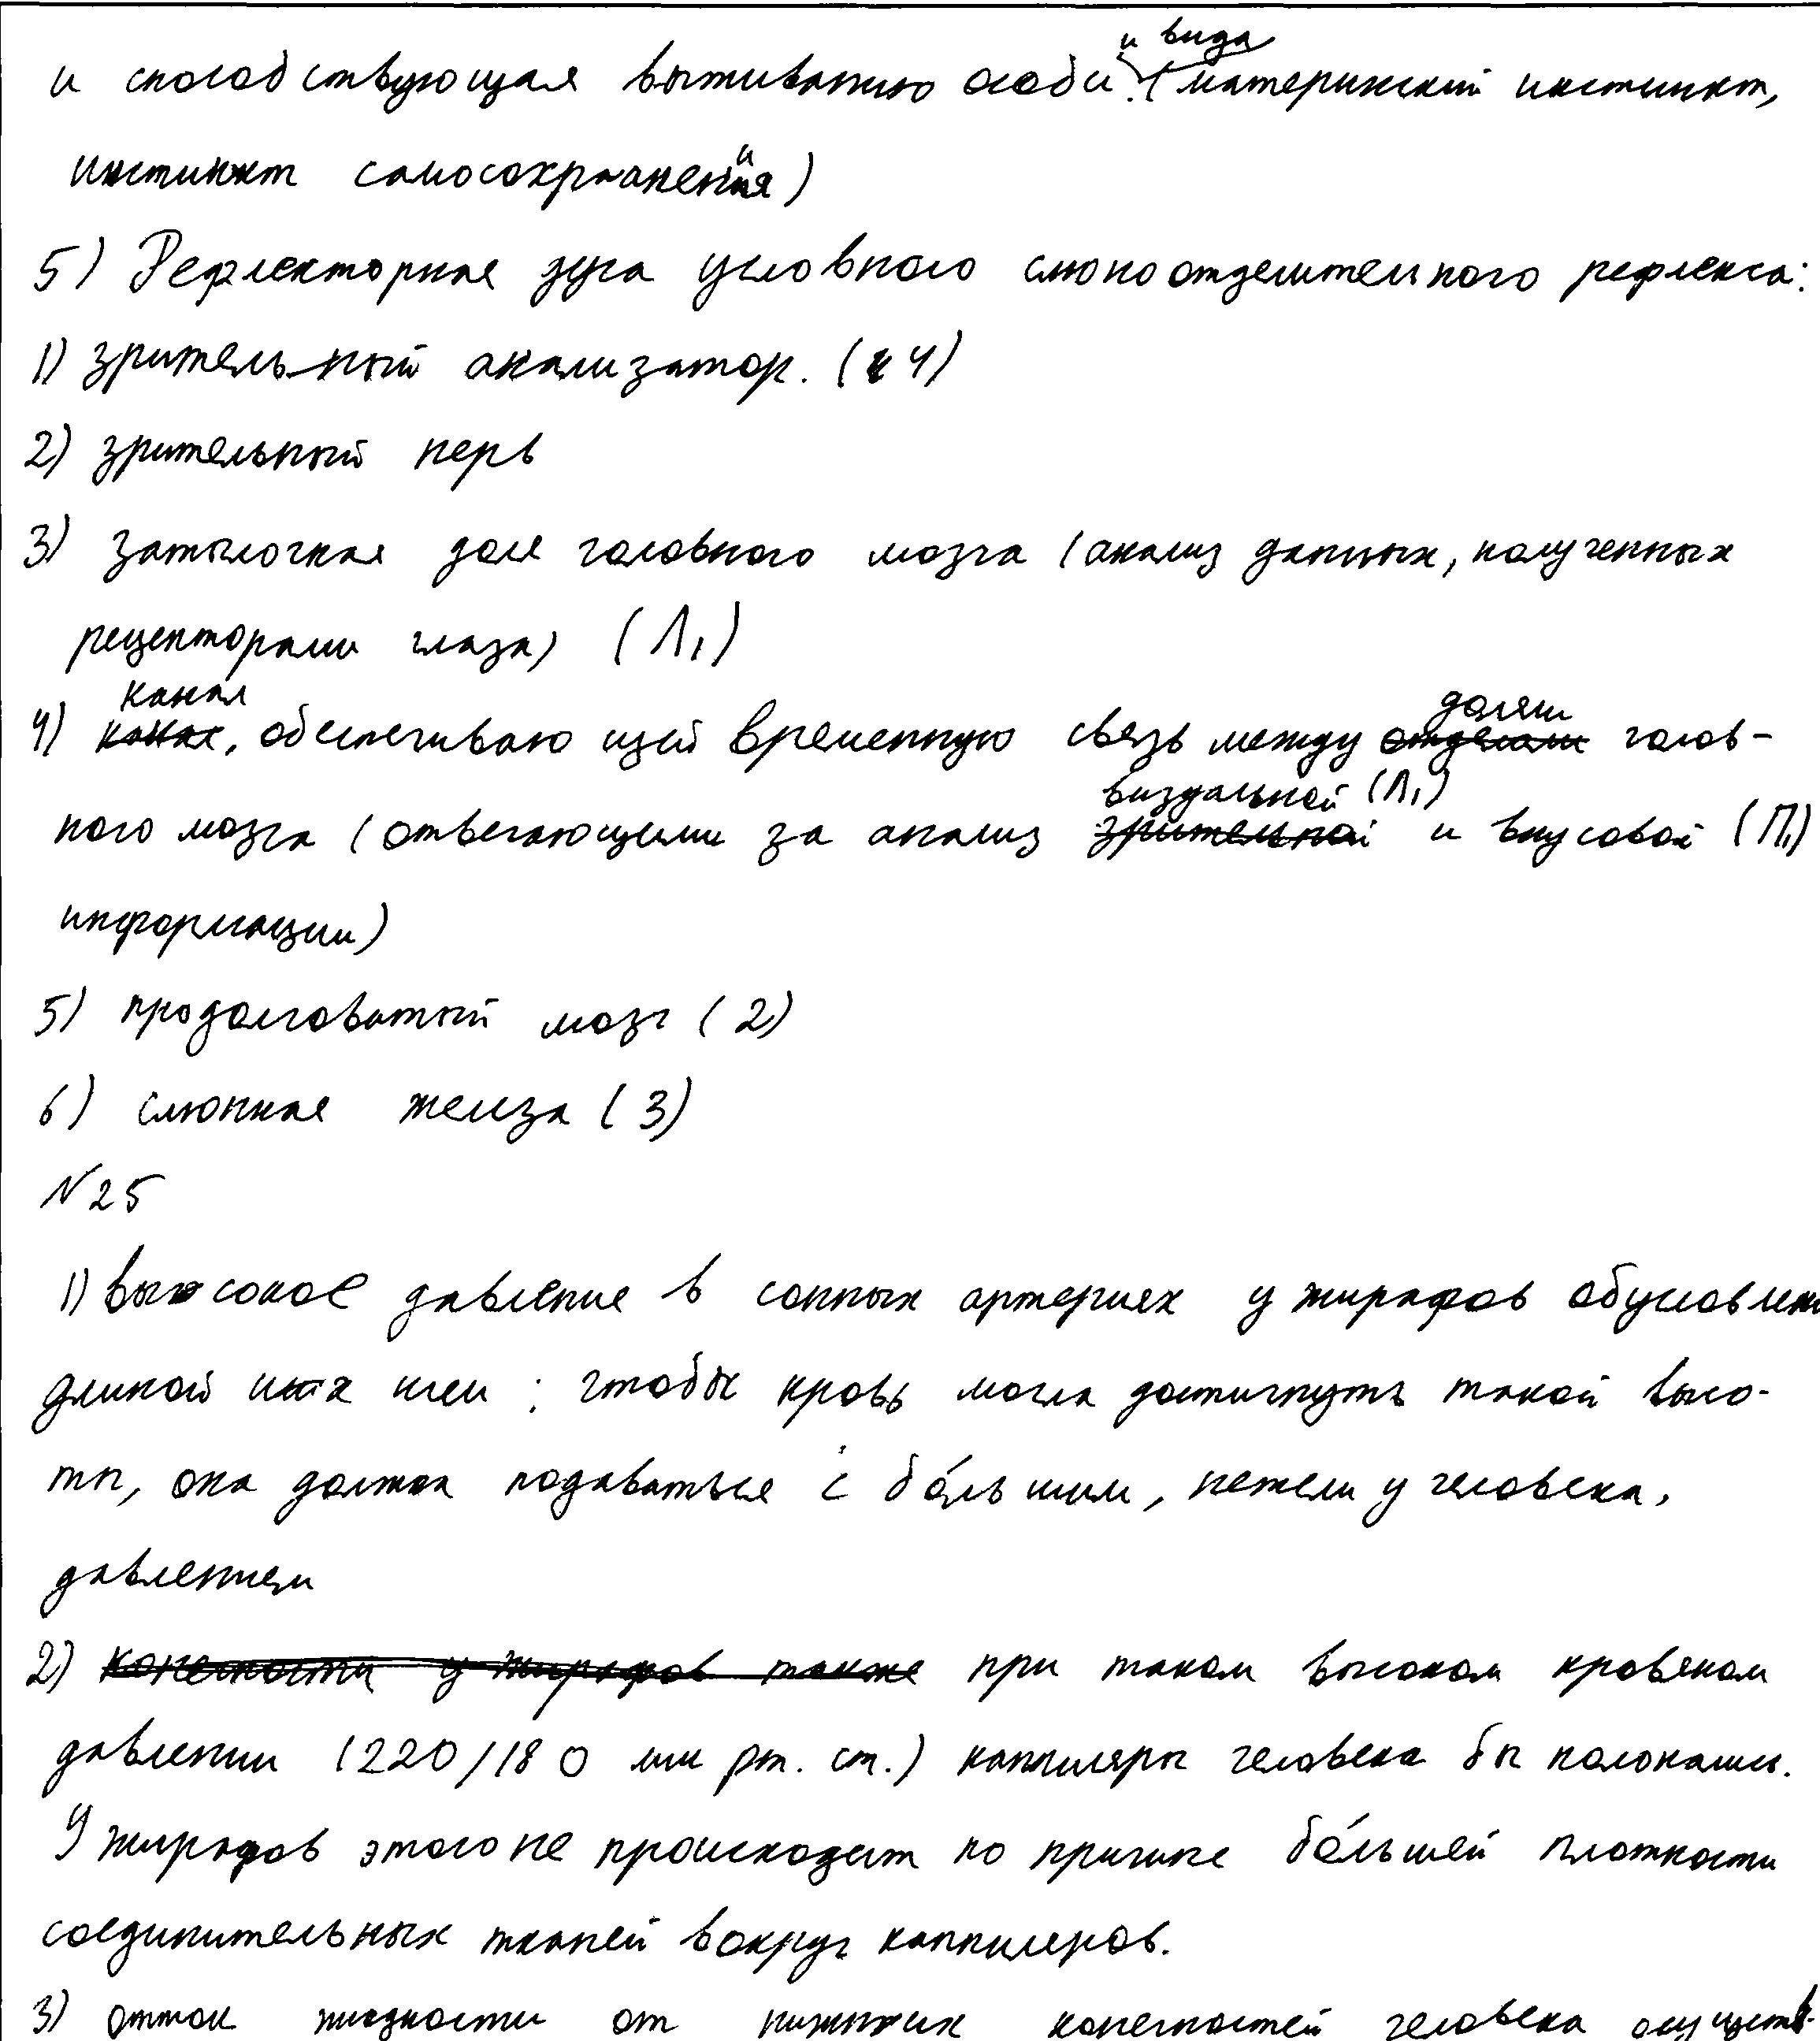 и способствующая выживанию особи и вида (материнский инстинкт,
инстинкт самосохранения)
5) Рефлекторная дуга условного слюноотделительного рефлекса:
1) зрительный анализатор. (4)
2) зрительный нерв
3) затылочная доля головного мозга (анализ данных, полученных
рецепторами глаза) (Л₁)
4) канал, обеспечивающий временную связь между долями голов-
ного мозга (отвечающими за анализ визуальной (Л₁) и вкусовой (П₁)
информации)
5) продолговатый мозг (2)
6) слюнная железа (3)
№25
1) высокое давление в сонных артериях у жирафов обусловлено
длиной их шеи: чтобы кровь могла достигнуть такой высо-
ты, она должна подаваться с бо́льшим, нежели у человека,
давлением
2) конечности у жирафов также при таком высоком кровяном
давлении (220/180 мм рт. ст.) каппиляры человека бы полопались.
У жирафов этого не происходит по причине бо́льшей плотности
соединительных тканей вокруг каппиляров.
3) отток жидкости от нижних конечностей человека осуществ-